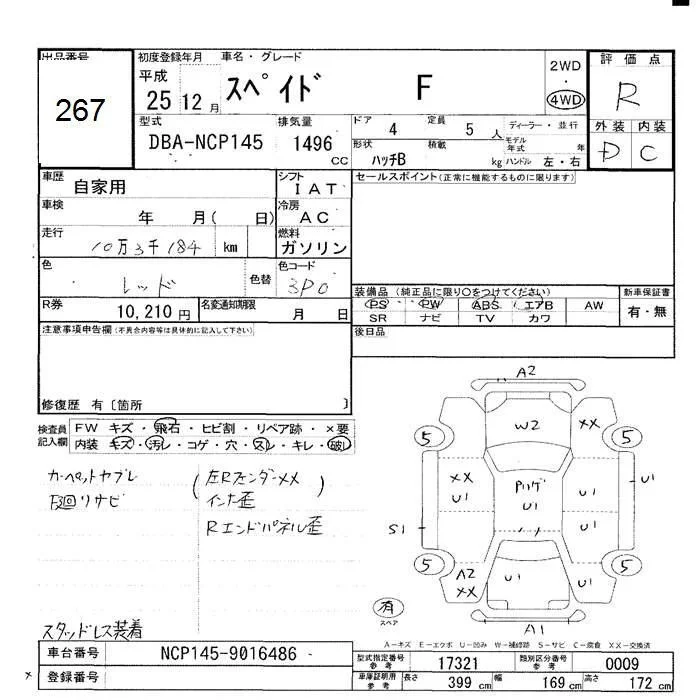 出品番号
267
初度登録年月
平成
25 12 月
車名・グレード
スペイド F
2WD
・
4WD
評価点
R
外装 内装
D C
型式
DBA-NCP145
排気量
1496
cc
ドア 4
定員 5 人
ディーラー・並行
形状 ハッチB
積載 kg
モデル年式 年
ハンドル 左・右
車歴 自家用
シフト IAT
セールスポイント(正常に機能するものに限ります)
車検 年 月( 日)
冷房 AC
走行 10万3千184 km
燃料 ガソリン
色 レッド
色替
色コード 3P0
装備品 (純正品に限り○をつけてください)
新車保証書
PS PW ABS エアB AW
有・無
SR ナビ TV カワ
R券 10,210 円
名変通知期限 月 日
後日品
注意事項申告欄(不具合内容等は具体的に記入して下さい)
修復歴 有〔箇所 〕
検査員記入欄
FW キズ・飛石・ヒビ割・リペア跡・×要
内装 キズ・汚レ・コゲ・穴・スレ・キレ・破レ
カーペットヤブレ
下廻リサビ
(左Rフェンダーxx
インナ歪)
Rエンドパネル歪
スタッドレス装着
A2
W2
XX
5
5
XX
U1
U1
U1
U1
U1
S1
5
5
A2
XX
U1
U1
A1
有
スペア
A-キズ E-エクボ U-凹み W-補修跡 S-サビ C-腐食 XX-交換済
車台番号 NCP145-9016486
登録番号
型式指定番号参考 17321
類別区分番号参考 0009
車庫証明用参考 長さ 399 cm 幅 169 cm 高さ 172 cm